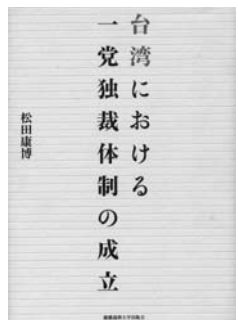 台湾における
一党独裁体制の成立
松田康博
慶應義塾大学出版会